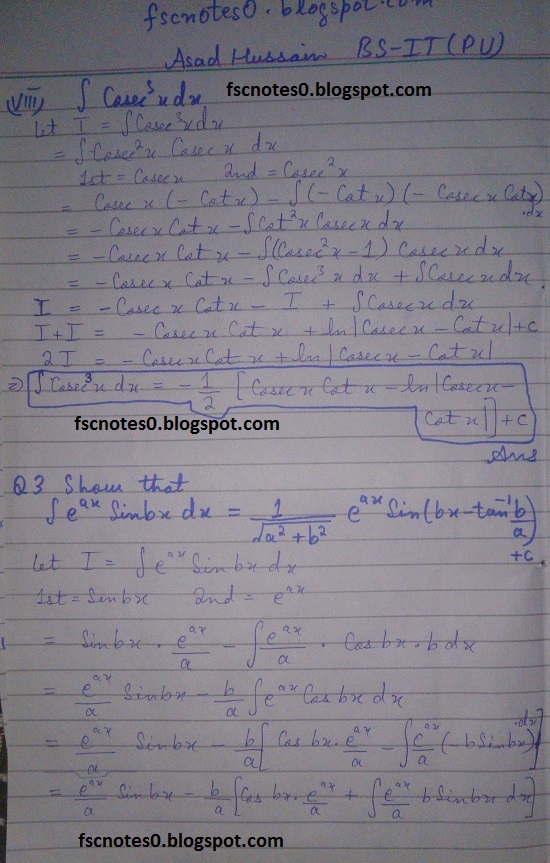 fscnotes0.blogspot.com
Asad Hussain BS-IT(PU)
(VIII) ∫ Cosec³x dx fscnotes0.blogspot.com
Let I = ∫Cosec³x dx
= ∫Cosec²x Cosec x dx
1st = Cosec x 2nd = Cosec²x
= Cosec x (-Cot x) - ∫(-Cot x)(-Cosec x Cot x) .dx
= -Cosec x Cot x - ∫Cot²x Cosec x dx
= -Cosec x Cot x - ∫(Cosec²x - 1) Cosec x dx
= -Cosec x Cot x - ∫Cosec³x dx + ∫Cosec x dx.
I = -Cosec x Cot x - I + ∫Cosec x dx
I + I = -Cosec x Cot x + ln|Cosec x - Cot x| + c
2I = -Cosec x Cot x + ln|Cosec x - Cot x|
=) ∫Cosec³x dx = -1/2 [Cosec x Cot x - ln|Cosec x -
Cot x|] + c
fscnotes0.blogspot.com
Ans
Q3 Show that
∫e^{ax} Sin bx dx = 1/√(a²+b²) e^{ax} Sin(bx - tan⁻¹ b/a)
+c
Let I = ∫e^{ax} Sin bx dx
1st = Sin bx 2nd = e^{ax}
= Sin bx . e^{ax}/a - ∫ e^{ax}/a . Cos bx . b dx
= e^{ax}/a Sin bx - b/a ∫e^{ax} Cos bx dx
= e^{ax}/a Sin bx - b/a [Cos bx . e^{ax}/a - ∫ e^{ax}/a (-b Sin bx) .dx]
= e^{ax}/a Sin bx - b/a [Cos bx . e^{ax}/a + ∫ e^{ax}/a b Sin bx dx]
fscnotes0.blogspot.com